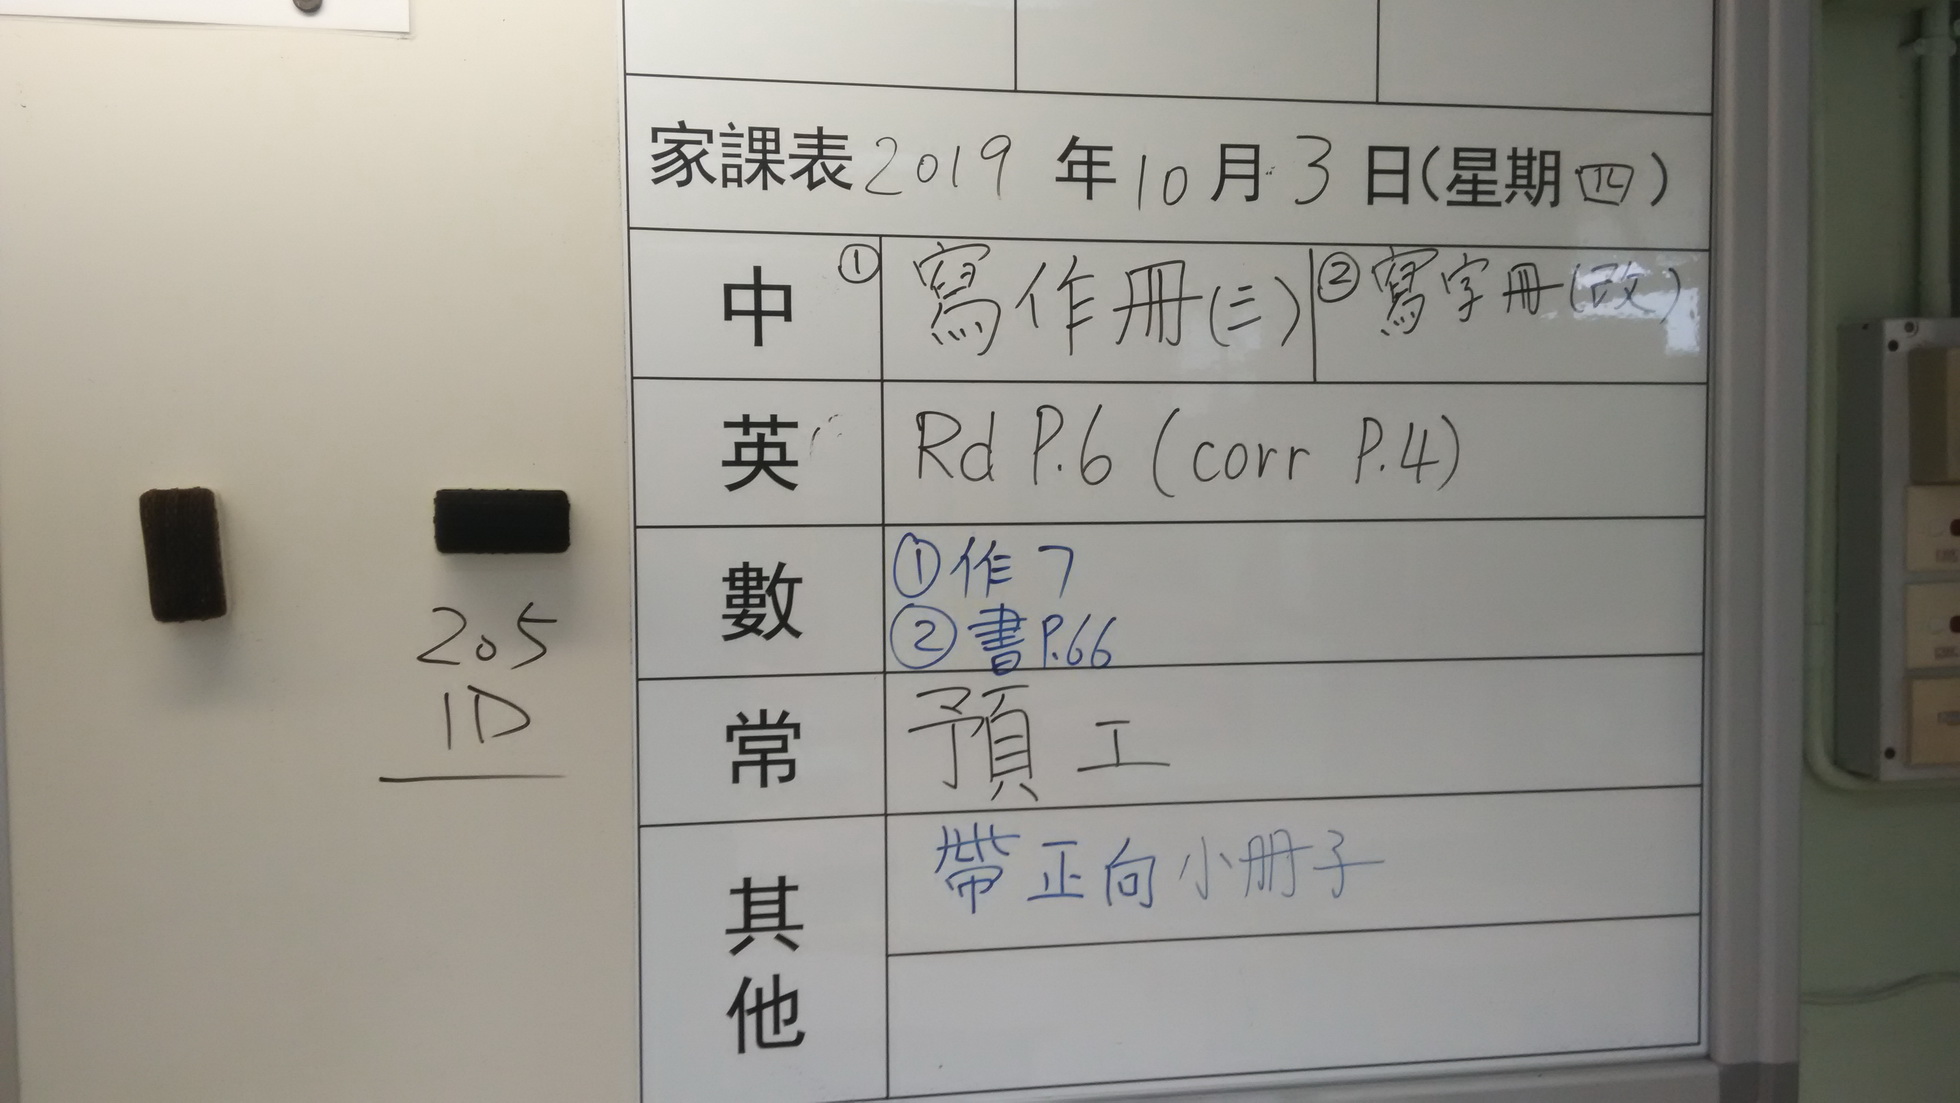 家課表 2019 年 10 月 3 日(星期四)
中 ① 寫作冊(三) ② 寫字冊(改)
英 Rd P.6 (corr P.4)
數 ① 作 7
② 書 P.66
常 預 工
其他 帶正向小冊子
205
1D